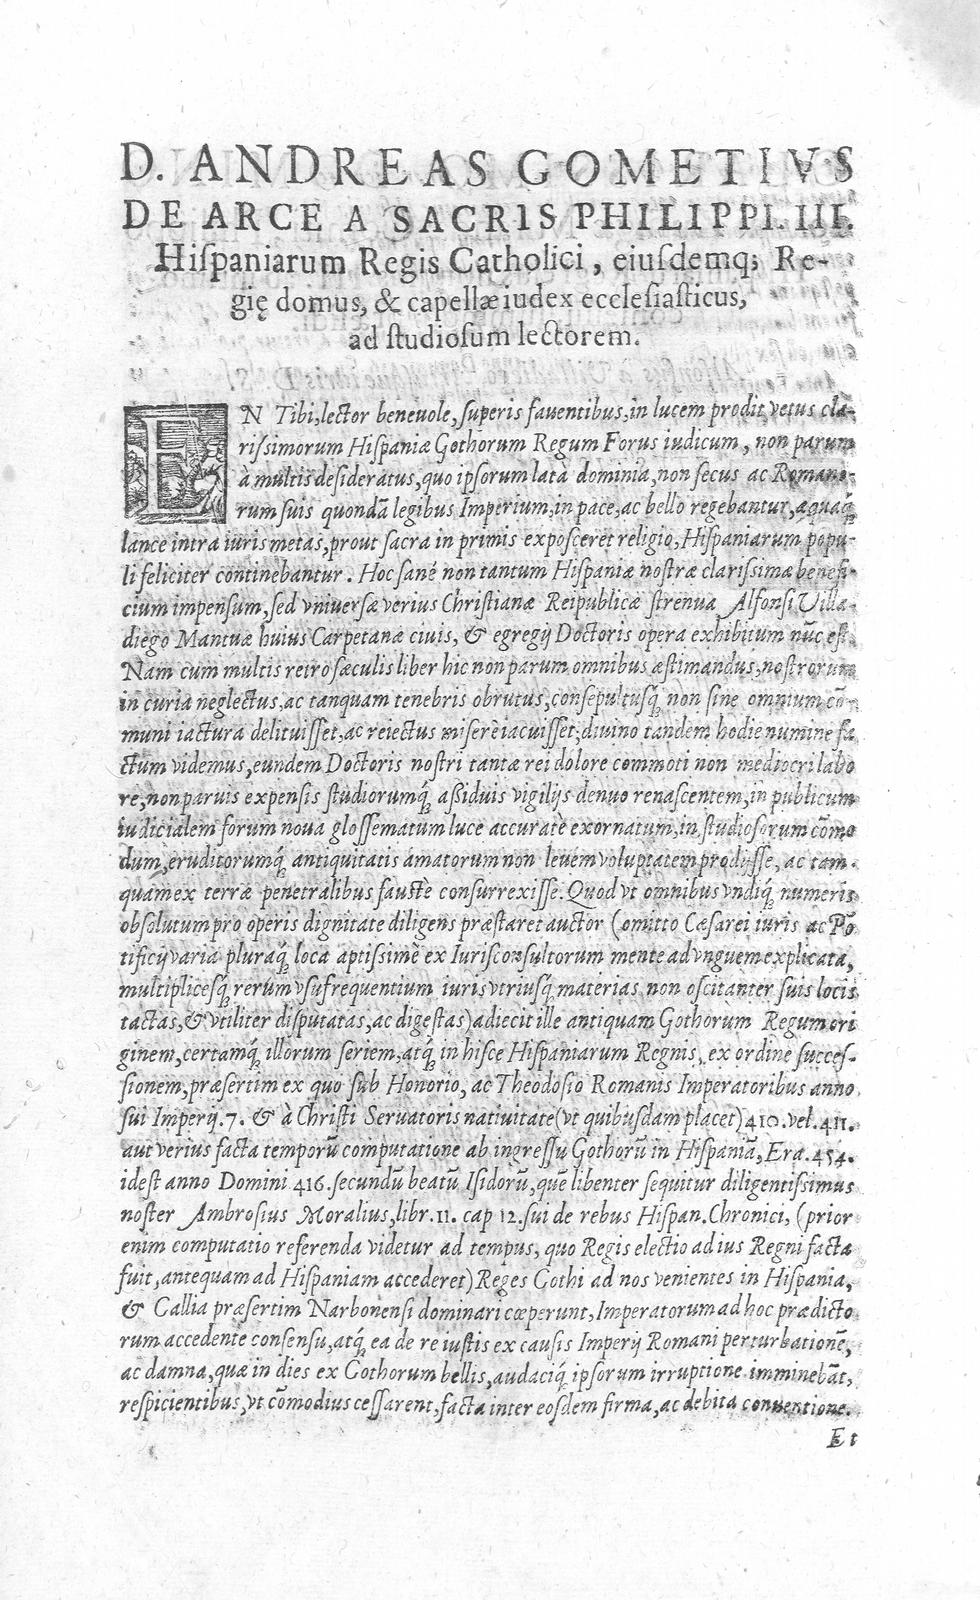 D. ANDREAS GOMETIVS
DE ARCE A SACRIS PHILIPPI. III.
Hiſpaniarum Regis Catholici, eiuſdemq; Re-
gię domus, & capellæ iudex eccleſiaſticus,
ad ſtudioſum lectorem.
EN Tibi, lector beneuole, ſuperis fauentibus, in lucem prodit vetus cla-
riſsimorum Hiſpaniæ Gothorum Regum Forus iudicum, non parum
à multis deſideratus, quo ipſorum latà dominia, non ſecus ac Romano-
rum ſuis quondã legibus Imperium, in pace, ac bello regebantur, æquaq́;
lance intra iuris metas, prout ſacra in primis expoſceret religio, Hiſpaniarum popu-
li feliciter continebantur. Hoc ſanè non tantum Hiſpaniæ noſtræ clariſsimæ benefi-
cium impenſum, ſed vniuerſæ verius Chriſtianæ Reipublicæ ſtrenua Alfonſi Villa-
diego Mantuæ huius Carpetanæ ciuis, & egregij Doctoris opera exhibitum nũc eſt.
Nam cum multis retro ſæculis liber hic non parum omnibus æſtimandus, noſtrorum
in curia neglectus, ac tanquam tenebris obrutus, conſepultuſq́; non ſine omnium cõ-
muni iactura delituiſſet, ac reiectus miſerè iacuiſſet, diuino tandem hodie numine fa
ctum videmus, eundem Doctoris noſtri tantæ rei dolore commoti non mediocri labo
re, non paruis expenſis ſtudiorumq́; aſsiduis vigilijs denuo renaſcentem, in publicum
iudicialem forum noua gloſſematum luce accuratè exornatum, in ſtudioſorum cõmo
dum, eruditorumq́; antiquitatis amatorum non leuem voluptatem prodijſſe, ac tam-
quàm ex terræ penetralibus fauſtè conſurrexiſſe. Quod vt omnibus vndiq́; numeris
obſolutum pro operis dignitate diligens præſtaret auctor (omitto Cæſarei iuris ac Põ
tificij varia pluraq́; loca aptiſsimè ex Iuriſconſultorum mente ad vnguem explicata,
multipliceſq́; rerum vſu frequentium iuris vtriuſq́; materias non oſcitanter ſuis locis
tactas, & vtiliter diſputatas, ac digeſtas) adiecit ille antiquam Gothorum Regum ori
ginem, certamq́; illorum ſeriem, atq́; in hiſce Hiſpaniarum Regnis, ex ordine ſucceſ-
ſionem, præſertim ex quo ſub Honorio, ac Theodoſio Romanis Imperatoribus anno
ſui Imperij. 7. & à Chriſti Seruatoris natiuitate (vt quibuſdam placet) 410. vel. 411.
aut verius facta temporũ computatione ab ingreſſu Gothorũ in Hiſpaniã, Era. 454.
ideſt anno Domini 416. ſecundũ beatũ Iſidorũ, quẽ libenter ſequitur diligentiſsimus
noſter Ambroſius Moralius, libr. 11. cap 12. ſui de rebus Hiſpan. Chronici, (prior
enim computatio referenda videtur ad tempus, quo Regis electio ad ius Regni facta
fuit, antequam ad Hiſpaniam accederet) Reges Gothi ad nos venientes in Hiſpania,
& Gallia præſertim Narbonenſi dominari cœperunt, Imperatorum ad hoc prædicto
rum accedente conſenſu, atq́; ea de re iuſtis ex cauſis Imperij Romani perturbationẽ,
ac damna, quæ in dies ex Gothorum bellis, audaciq́; ipſorum irruptione imminebãt,
reſpicientibus, vt cõmodius ceſſarent, facta inter eoſdem firma, ac debita conuentione.
Et